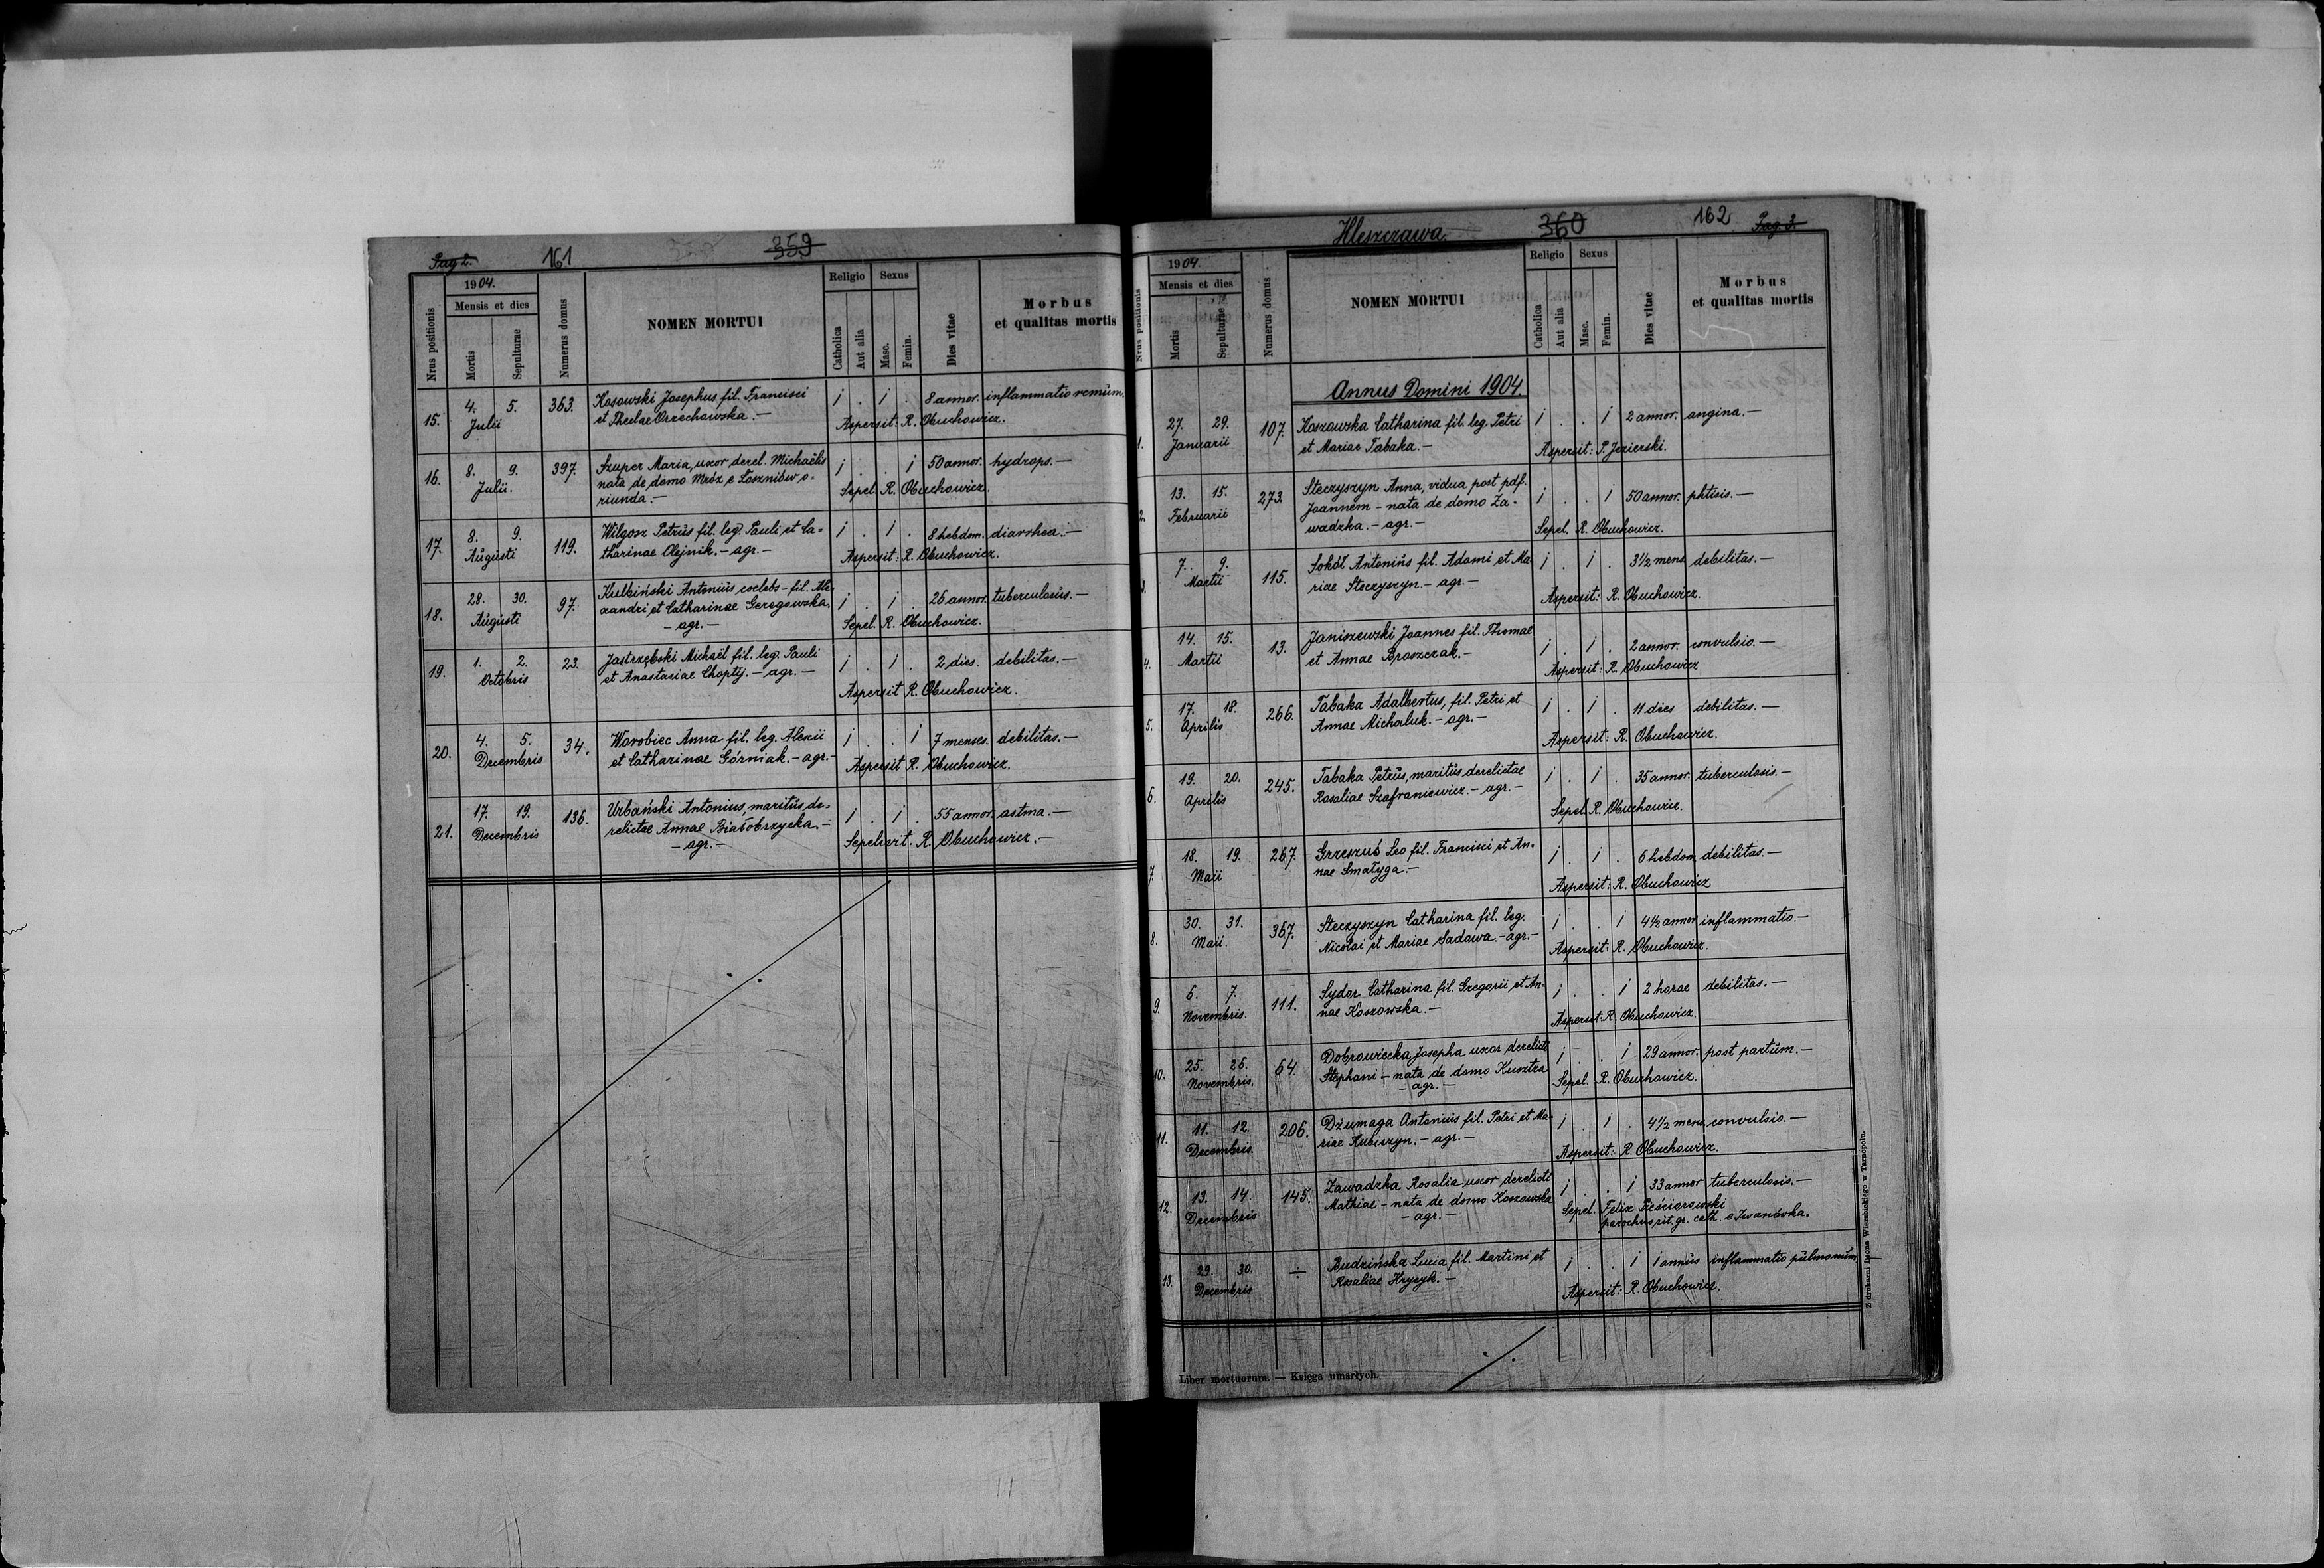 Pag 2. 161 359
1904.
Nrus positionis
Mensis et dies
Mortis
Sepulturae
Numerus domus
NOMEN MORTUI
Religio
Catholica
Aut alia
Sexus
Masc.
Femin.
Dies vitae
Morbus
et qualitas mortis
15. 4. 5. Julii 363. Kosowski Josephus fil. Francisci i . i . 8 annor. inflammatio renium.
et Theclae Orzechowska.— Aspersit: R. Obuchowicz.
16. 8. 9. Julii. 397. Szuper Maria, uxor derel. Michaëlis i . . i 50 annor. hydrops.—
nata de domo Mróz e Łoszniów o-
riunda.— Sepel. R. Obuchowicz.
17. 8. 9. Augusti 119. Wilgosz Petrus fil. leg. Pauli et Ca- i . i . 8 hebdom. diarrhea.—
tharinae Olejnik.— agr.— Aspersit: R. Obuchowicz.
18. 28. 30. Augusti 97. Kulbiński Antonius coelebs - fil. Ale- i . i . 26 annor. tuberculosis.—
xandri et Catharinae Geregowska.
— agr.— Sepel. R. Obuchowicz.
19. 1. 2. Octobris 23. Jastrzębski Michaël fil. leg. Pauli i . i . 2 dies. debilitas.—
et Anastasiae Chopty.— agr.— Aspersit R. Obuchowicz.
20. 4. 5. Decembris 34. Worobiec Anna fil. leg. Alexii i . . i 7 menses. debilitas.—
et Catharinae Górniak.— agr.— Aspersit R. Obuchowicz.
21. 17. 19. Decembris 136. Urbański Antonius maritus de- i . i . 55 annor. astma.—
relictae Annae Białobrzycka.—
— agr.— Sepelivit. R. Obuchowicz.—
Hleszczawa. 360 162 Pag 3.
1904.
Nrus positionis
Mensis et dies
Mortis
Sepulturae
Numerus domus
NOMEN MORTUI
Religio
Catholica
Aut alia
Sexus
Masc.
Femin.
Dies vitae
Morbus
et qualitas mortis
Annus Domini 1904.
1. 27. 29. Januarii 107. Koszowska Catharina fil. leg. Petri i . . i 2 annor. angina.—
et Mariae Tabaka.— Aspersit: P. Jezierski.
2. 13. 15. Februarii 273. Steczyszyn Anna, vidua post pdf. i . . i 50 annor. phtisis.—
Joannem - nata de domo Za-
wadzka.— agr.— Sepel. R. Obuchowicz.
3. 7. 9. Martii 115. Sokół Antonius fil. Adami et Ma- i . i . 3½ mens. debilitas.—
riae Steczyszyn.— agr.— Aspersit: R. Obuchowicz.
4. 14. 15. Martii 13. Janiszewski Joannes fil. Thomae i . i . 2 annor. convulsio.—
et Annae Broszczak.— Aspersit: R. Obuchowicz
5. 17. 18. Aprilis 266. Tabaka Adalbertus, fil. Petri et i . i . 11 dies debilitas.—
Annae Michaluk.— agr.— Aspersit: R. Obuchowicz.
6. 19. 20. Aprilis 245. Tabaka Petrus, maritus derelictae i . i . 35 annor. tuberculosis.—
Rosaliae Szafraniewicz.— agr.— Sepel. R. Obuchowicz.
7. 18. 19. Maii 267. Grzeszuś Leo fil. Francisci et An- i . i . 6 hebdom. debilitas.—
nae Smałyga.— Aspersit: R. Obuchowicz
8. 30. 31. Maii. 367. Steczyszyn Catharina fil. leg. i . . i 4½ annor. inflammatio.—
Nicolai et Mariae Sadowa.— agr.— Aspersit: R. Obuchowicz.
9. 6. 7. Novembris. 111. Sydor Catharina fil. Gregorii et An- i . . i 2 horae debilitas.—
nae Koszowska.— Aspersit: R. Obuchowicz.
10. 25. 26. Novembris. 64. Dobrowiecka Josepha uxor derelicti i . . i 29 annor. post partum.—
Stephani - nata de domo Kusztra
— agr.— Sepel. R. Obuchowicz.
11. 11. 12. Decembris. 206. Dżumaga Antonius fil. Petri et Ma- i . i . 4½ mens. convulsio.—
riae Kubiszyn.— agr.— Aspersit: R. Obuchowicz.
12. 13. 14. Decembris 145. Zawadzka Rosalia uxor derelicti i . . i 33 annor tuberculosis.—
Mathiae - nata de domo Koszowska
— agr.— Sepel. Felix
parochus rit. gr. cath. e Iwanówka.
13. 29. 30. Decembris ÷ Budzińska Lucia fil. Martini et i . . i 1 annus inflammatio pulmonum.—
Rosaliae Hrycyk.— Aspersit: R. Obuchowicz.
Liber mortuorum. — Księga umarłych.
Z drukarni Leona Wierzbickiego w Tarnopolu.